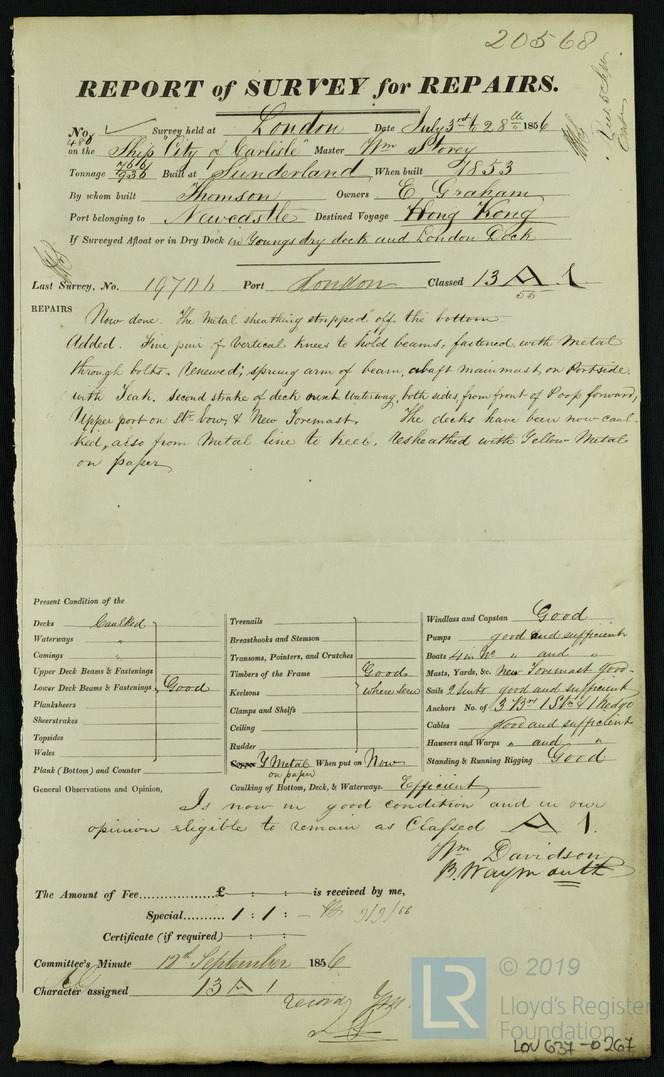 20568
REPORT of SURVEY for REPAIRS.
No. 480 Survey held at London Date July 3rd to 28th 1856
on the Ship "City of Carlisle" Master Wm Storey
Tonnage 766/936 Built at Sunderland When built 1853
By whom built Thomson Owners E. Graham
Port belonging to Newcastle Destined Voyage Hong Kong
If Surveyed Afloat or in Dry Dock in Youngs dry dock and London Dock
Last Survey, No. 19706 Port London Classed 13 A 1
55
REPAIRS Now done. The Metal sheathing stripped off the bottom.
Added. Five pair of Vertical Knees to hold beams, fastened with Metal
through bolts. Renewed; sprung arm of beam, abaft mainmast, on Portside
with Teak. Second strake of deck next Waterway, both sides, from front of Poop forward,
Upper port on St. bow, & New Foremast. The decks have been now caul-
ked, also from Metal line to keel. Resheathed with Yellow Metal
on paper
Present Condition of the
Decks Caulked
Waterways "
Comings "
Upper Deck Beams & Fastenings
Lower Deck Beams & Fastenings Good
Planksheers
Sheerstrakes
Topsides
Wales
Plank (Bottom) and Counter
Treenails
Breasthooks and Stemson
Transoms, Pointers, and Crutches
Timbers of the Frame Good
Keelsons where seen
Clamps and Shelfs
Ceiling
Rudder
Copper Y Metal When put on Now
on paper
Caulking of Bottom, Deck, & Waterways. Efficient
Windlass and Capstan Good
Pumps good and sufficient
Boats 4 in No " and "
Masts, Yards, &c. New Foremast good
Sails 2 Suits good and sufficient
Anchors No. of 3 Brs 1 Stm & 1 Kedge
Cables good and sufficient
Hawsers and Warps " and "
Standing & Running Rigging Good
General Observations and Opinion,
Is now in good condition and in our
opinion eligible to remain as Classed A 1.
Wm Davidson
B. Waymouth
The Amount of Fee.................£ - : - : - is received by me,
Special........... 1 : 1 : - 9/9/56
Certificate (if required) - : - : -
Committee's Minute 12th September 1856
Character assigned 13 A 1
© 2019
LR Lloyd's Register
Foundation
LOU 637-0267